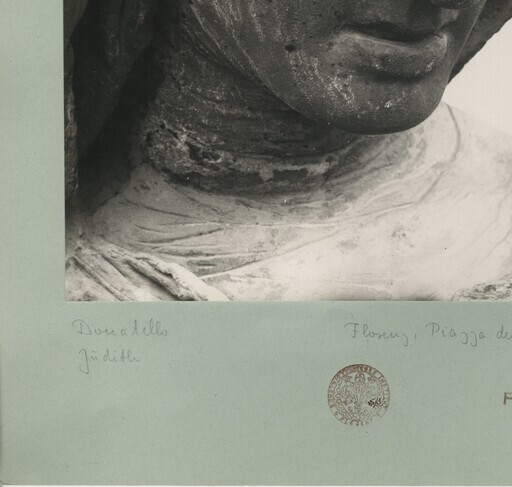 Donatello
Judith
Florenz, Piazza de